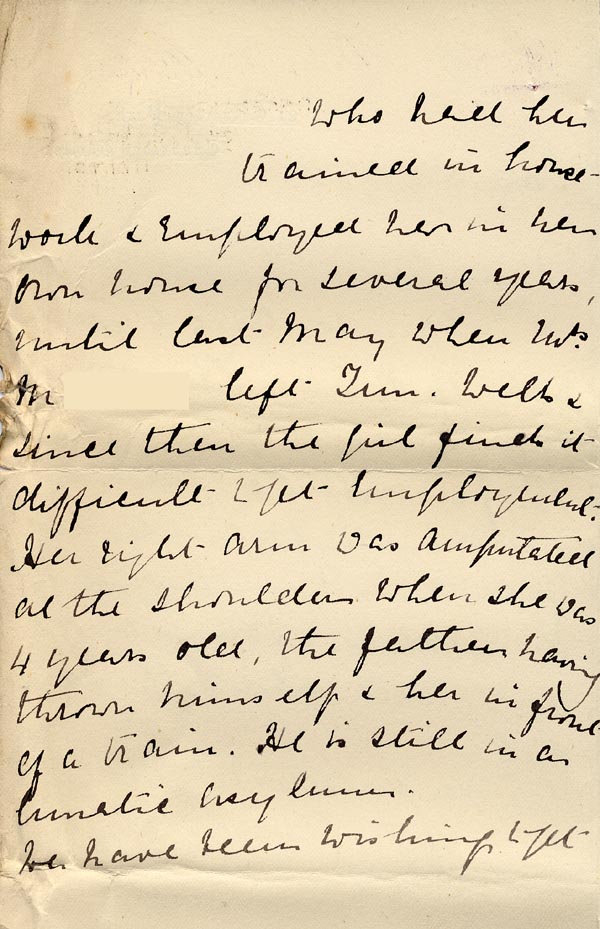 who had her
trained in house-
work & employed her in her
own house for several years,
until last May when Mrs
M left Tun. Wells &
since then the girl finds it
difficult to get employment.
Her right arm was amputated
at the shoulder when she was
4 years old, the father having
thrown himself & her in front
of a train. He is still in a
lunatic asylum.
We have been wishing to get